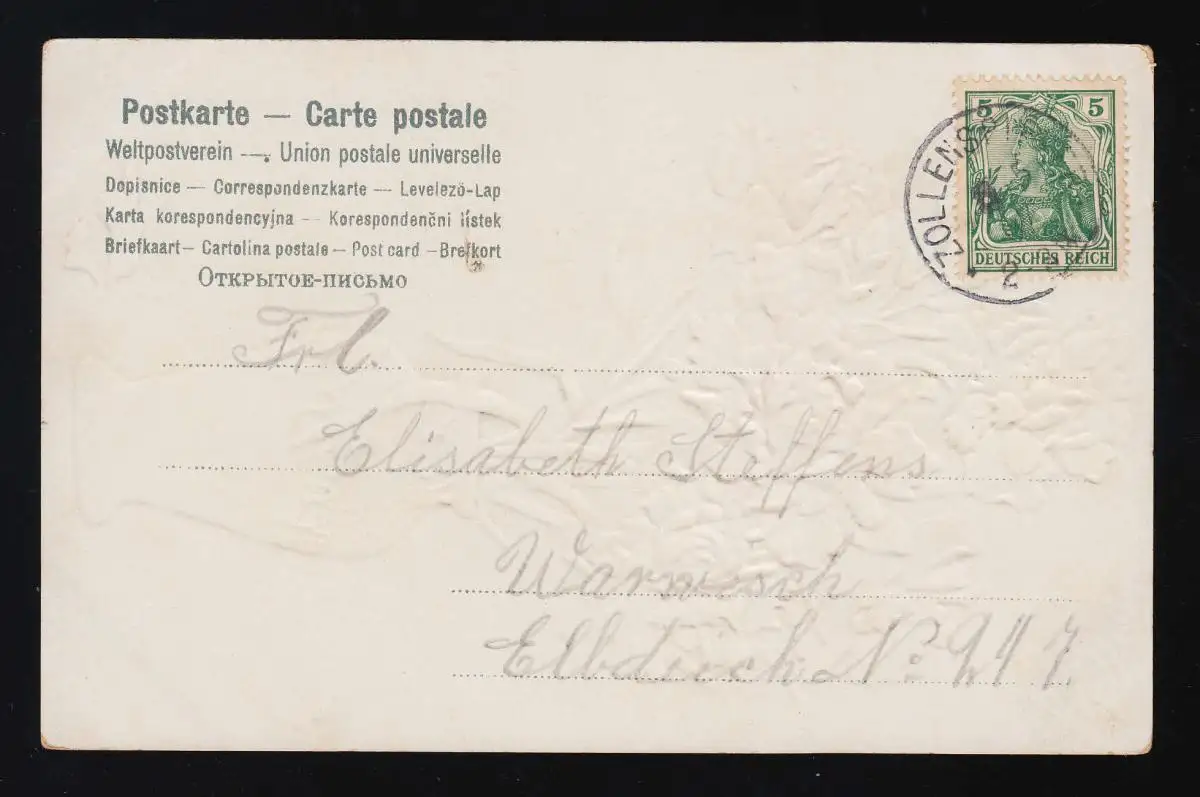 Postkarte — Carte postale
Weltpostverein — Union postale universelle
Dopisnice — Correspondenzkarte — Levelező-Lap
Karta korespondencyjna — Korespondenčni lístek
Briefkaart — Cartolina postale — Post card — Brefkort
ОТКРЫТОЕ-ПИСЬМО
5 5
DEUTSCHES REICH
ZOLLENS
Frl.
Elisabeth Steffens
Warwisch
Elbdeich No